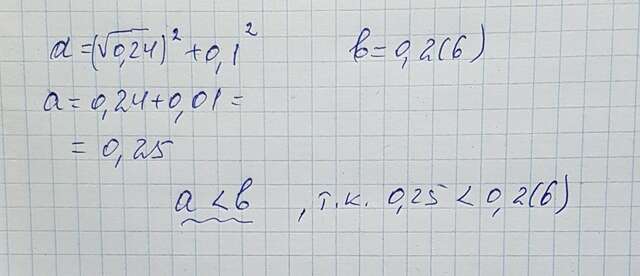 a = (√0,24)² + 0,1² в = 0,2(6)
a = 0,24 + 0,01 =
= 0,25
a < в , т.к. 0,25 < 0,2(6)